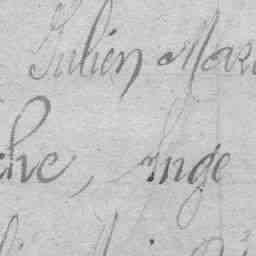 Julien Mar
che, Ange